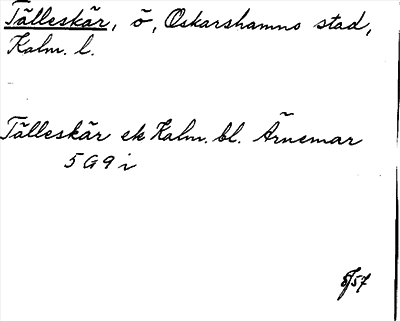 Tälleskär, ö, Oskarshamns stad,
Kalm. l.
Tälleskär ek Kalm. bl. Ärnemar
5 G 9 i